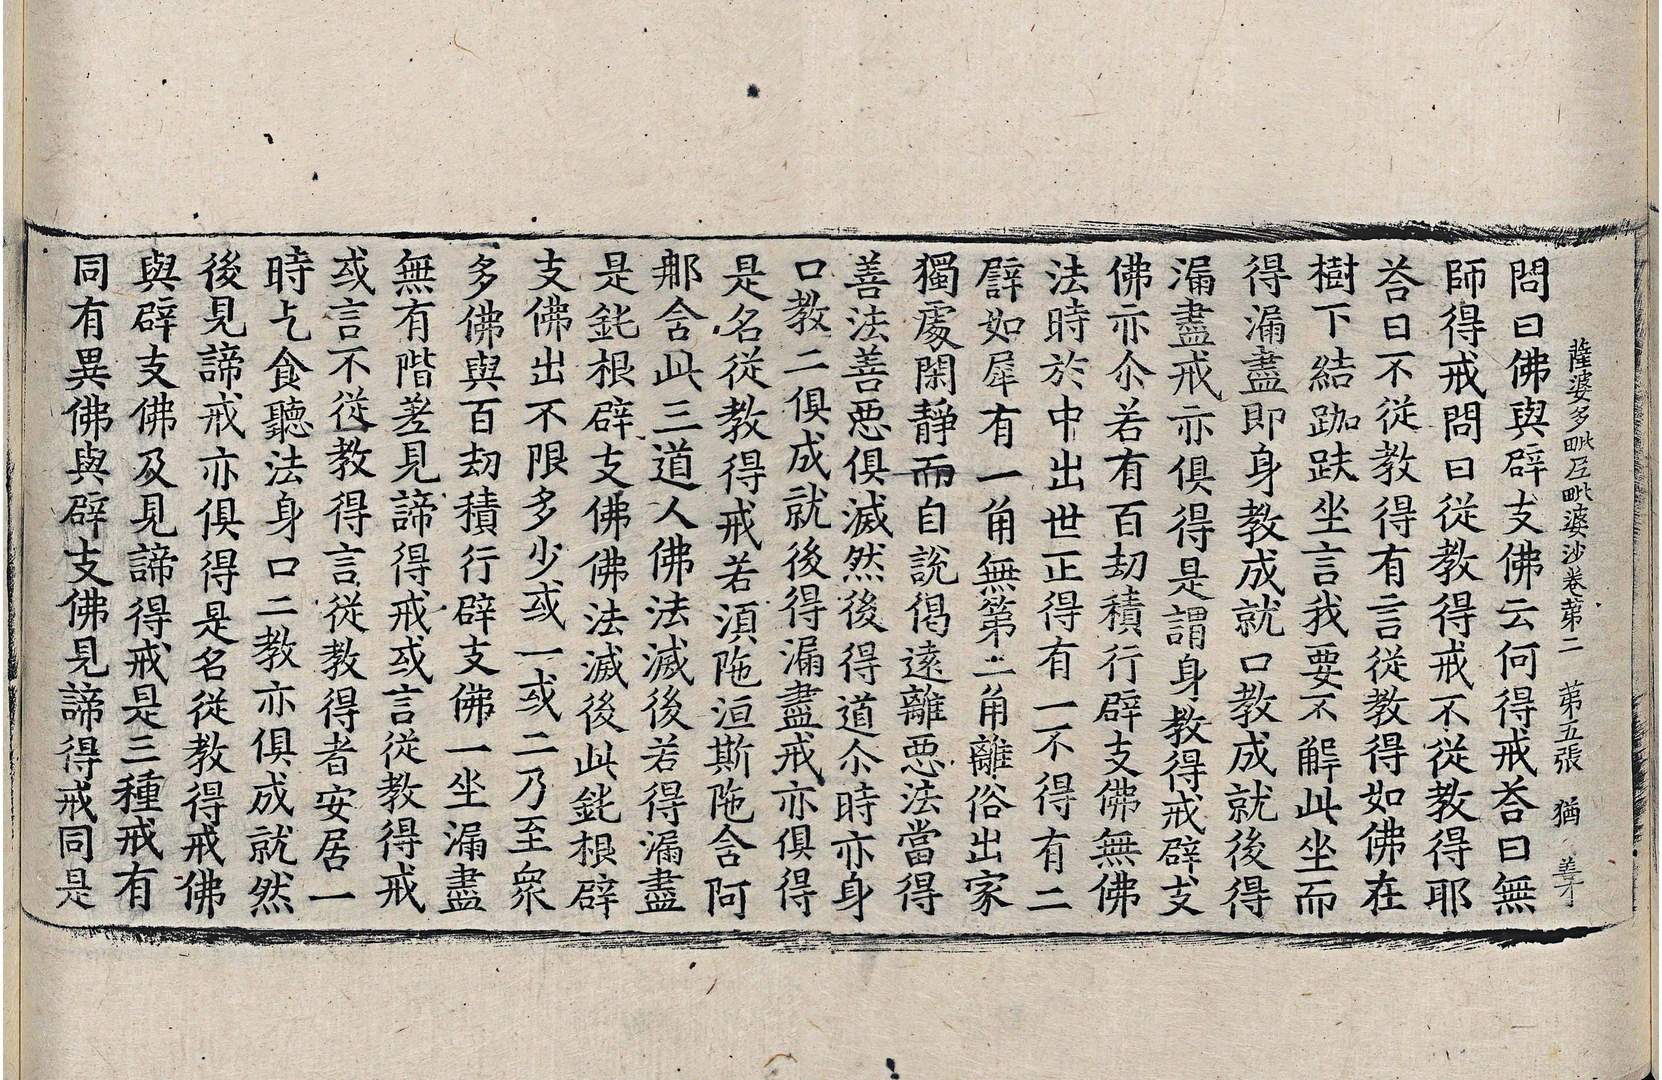 薩婆多毗尼毗婆沙卷第二　第五張　猶　善才
問曰佛與辟支佛云何得戒荅曰無
師得戒問曰從教得戒不從教得耶
荅曰不從教得有言從教得如佛在
樹下結跏趺坐言我要不解此坐而
得漏盡即身教成就口教成就後得
漏盡戒亦俱得是謂身教得戒辟支
佛亦尒若有百劫積行辟支佛無佛
法時於中出世正得有一不得有二
譬如犀有一角無第二角離俗出家
獨處閑靜而自說偈遠離惡法當得
善法善惡俱滅然後得道尒時亦身
口教二俱成就後得漏盡戒亦俱得
是名從教得戒若湏陁洹斯陁含阿
那含此三道人佛法滅後若得漏盡
是鈍根辟支佛佛法滅後此鈍根辟
支佛出不限多少或一或二乃至衆
多佛與百劫積行辟支佛一坐漏盡
無有階差見諦得戒或言從教得戒
或言不從教得言從教得者安居一
時乞食聽法身口二教亦俱成就然
後見諦戒亦俱得是名從教得戒佛
與辟支佛及見諦得戒是三種戒有
同有異佛與辟支佛見諦得戒同是